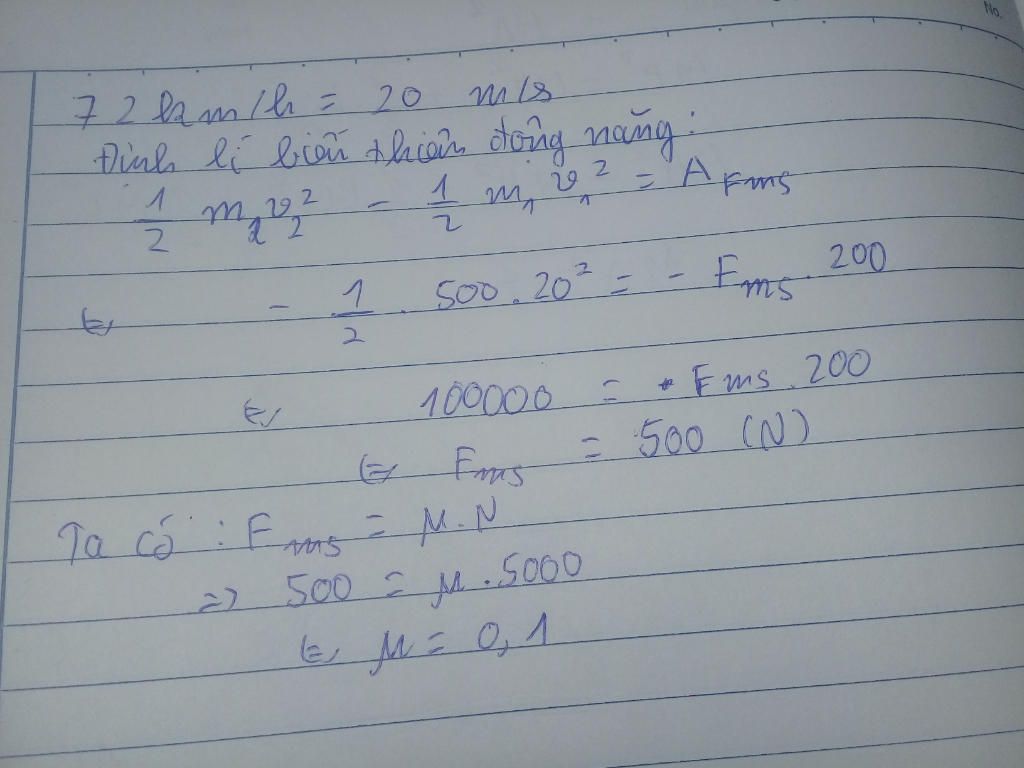 No.
72 km/h = 20 m/s
Định lí biến thiên động năng:
1/2 m₂v₂² - 1/2 m₁v₁² = A Fms
⇔ - 1/2 . 500 . 20² = - Fms . 200
⇔ 100000 = Fms . 200
⇔ Fms = 500 (N)
Ta có : Fms = μ.N
=> 500 = μ . 5000
⇔ μ = 0,1